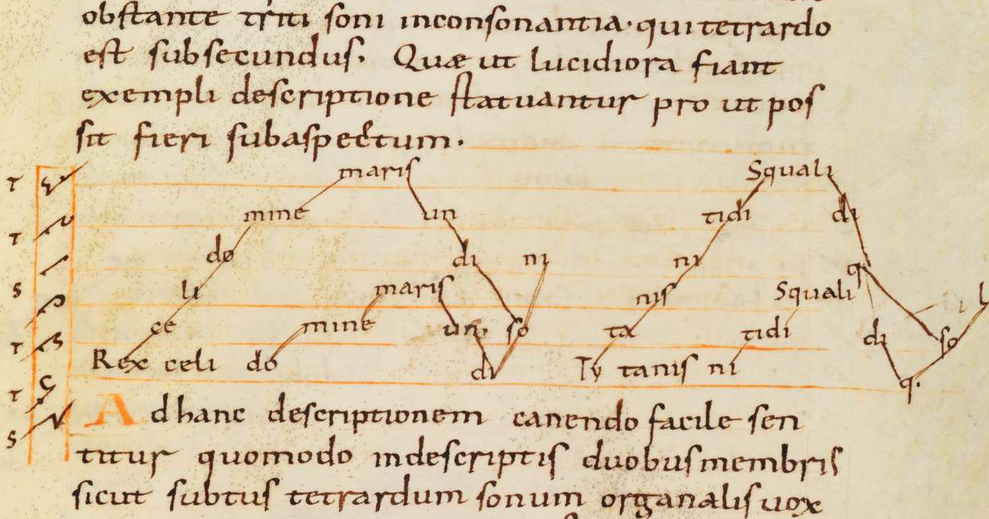 obstante triti soni inconsonantia· qui tetrardo
est subsecundus. Quæ ut lucidiora fiant
exempli descriptione statuantur pro ut pos
sit fieri subaspectum.
T maris Squali
T mine un tidi di
do di ni ni q
S li maris nis Squali
T ce mine un so ta tidi di so
T Rex celi do di Ty tanis ni q.
S
Ad hanc descriptionem canendo facile sen
titur quomodo indescriptis duobus membris
sicut subtus tetrardum sonum organalis vox